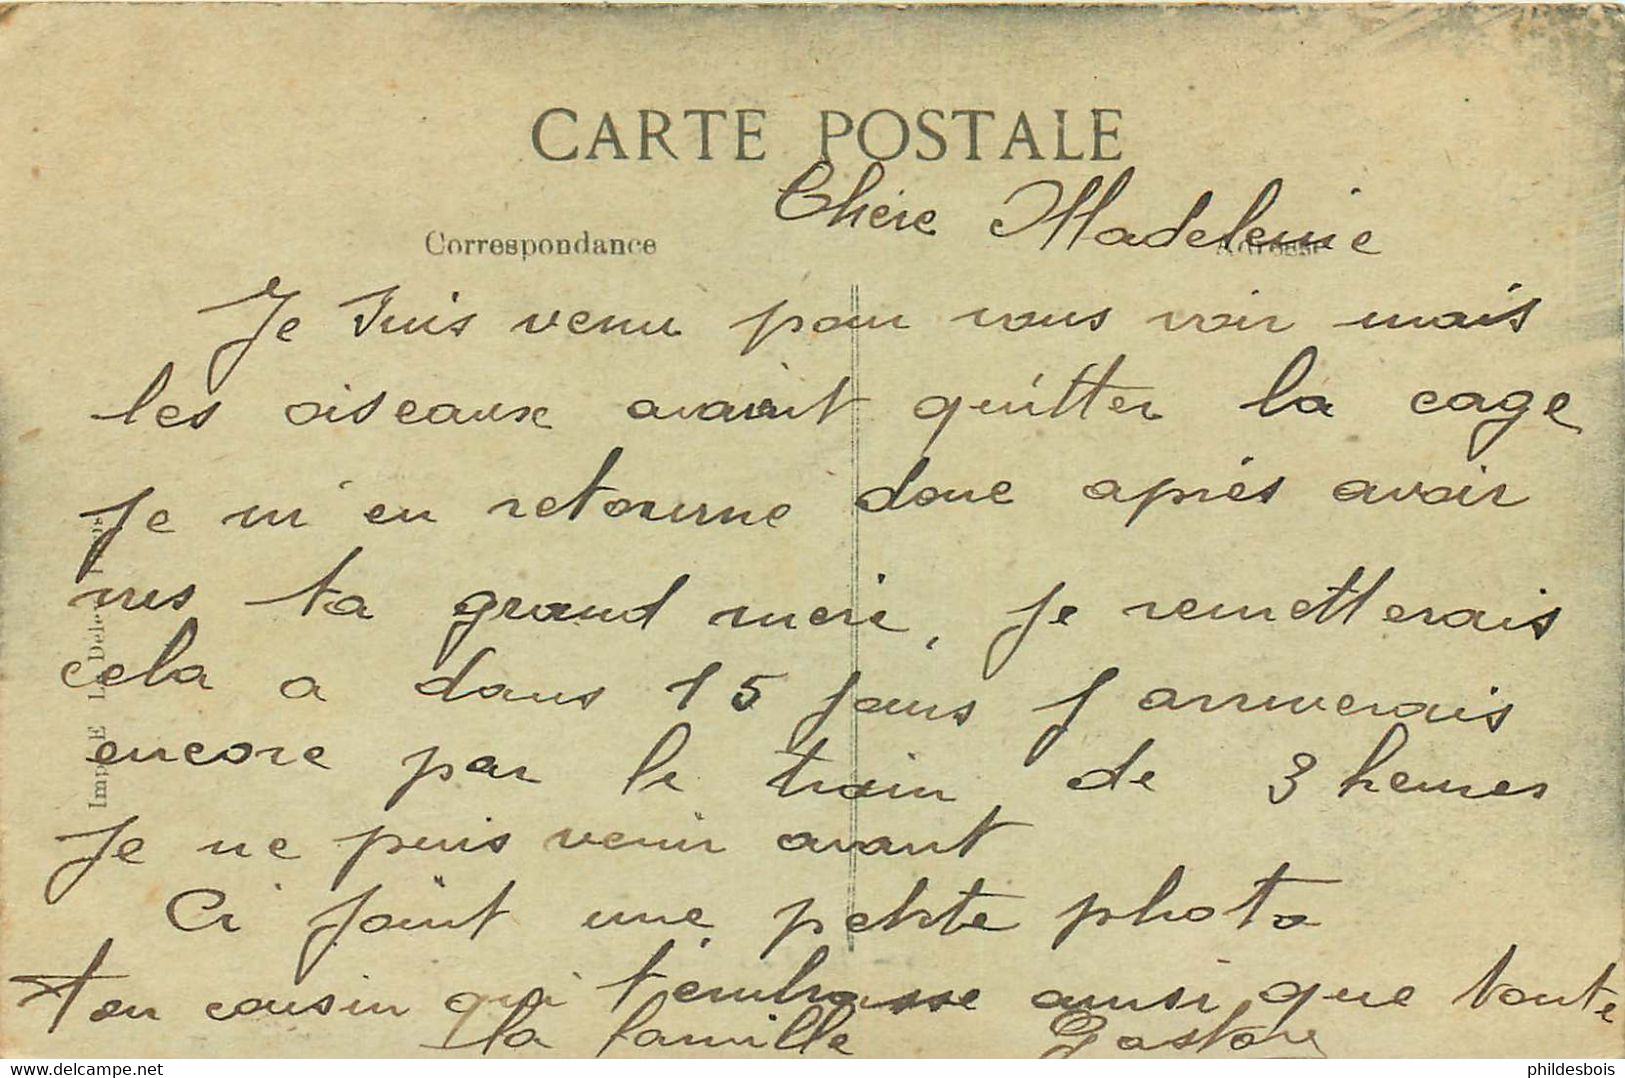 CARTE POSTALE
Chère Madeleine
Correspondance
Adresse
Je suis venu pour vous voir mais
les oiseaux avaint quitter la cage
Je m'en retourne donc après avoir
vus ta grand mère, je remetterais
cela a dans 15 jours j arriverais
encore par le train de 3 heures
Je ne puis venir avant
Ci joint une petite photo
ton cousin qui t'embrasse ainsi que toute
la famille Gaston
Imp. E
phildesbois